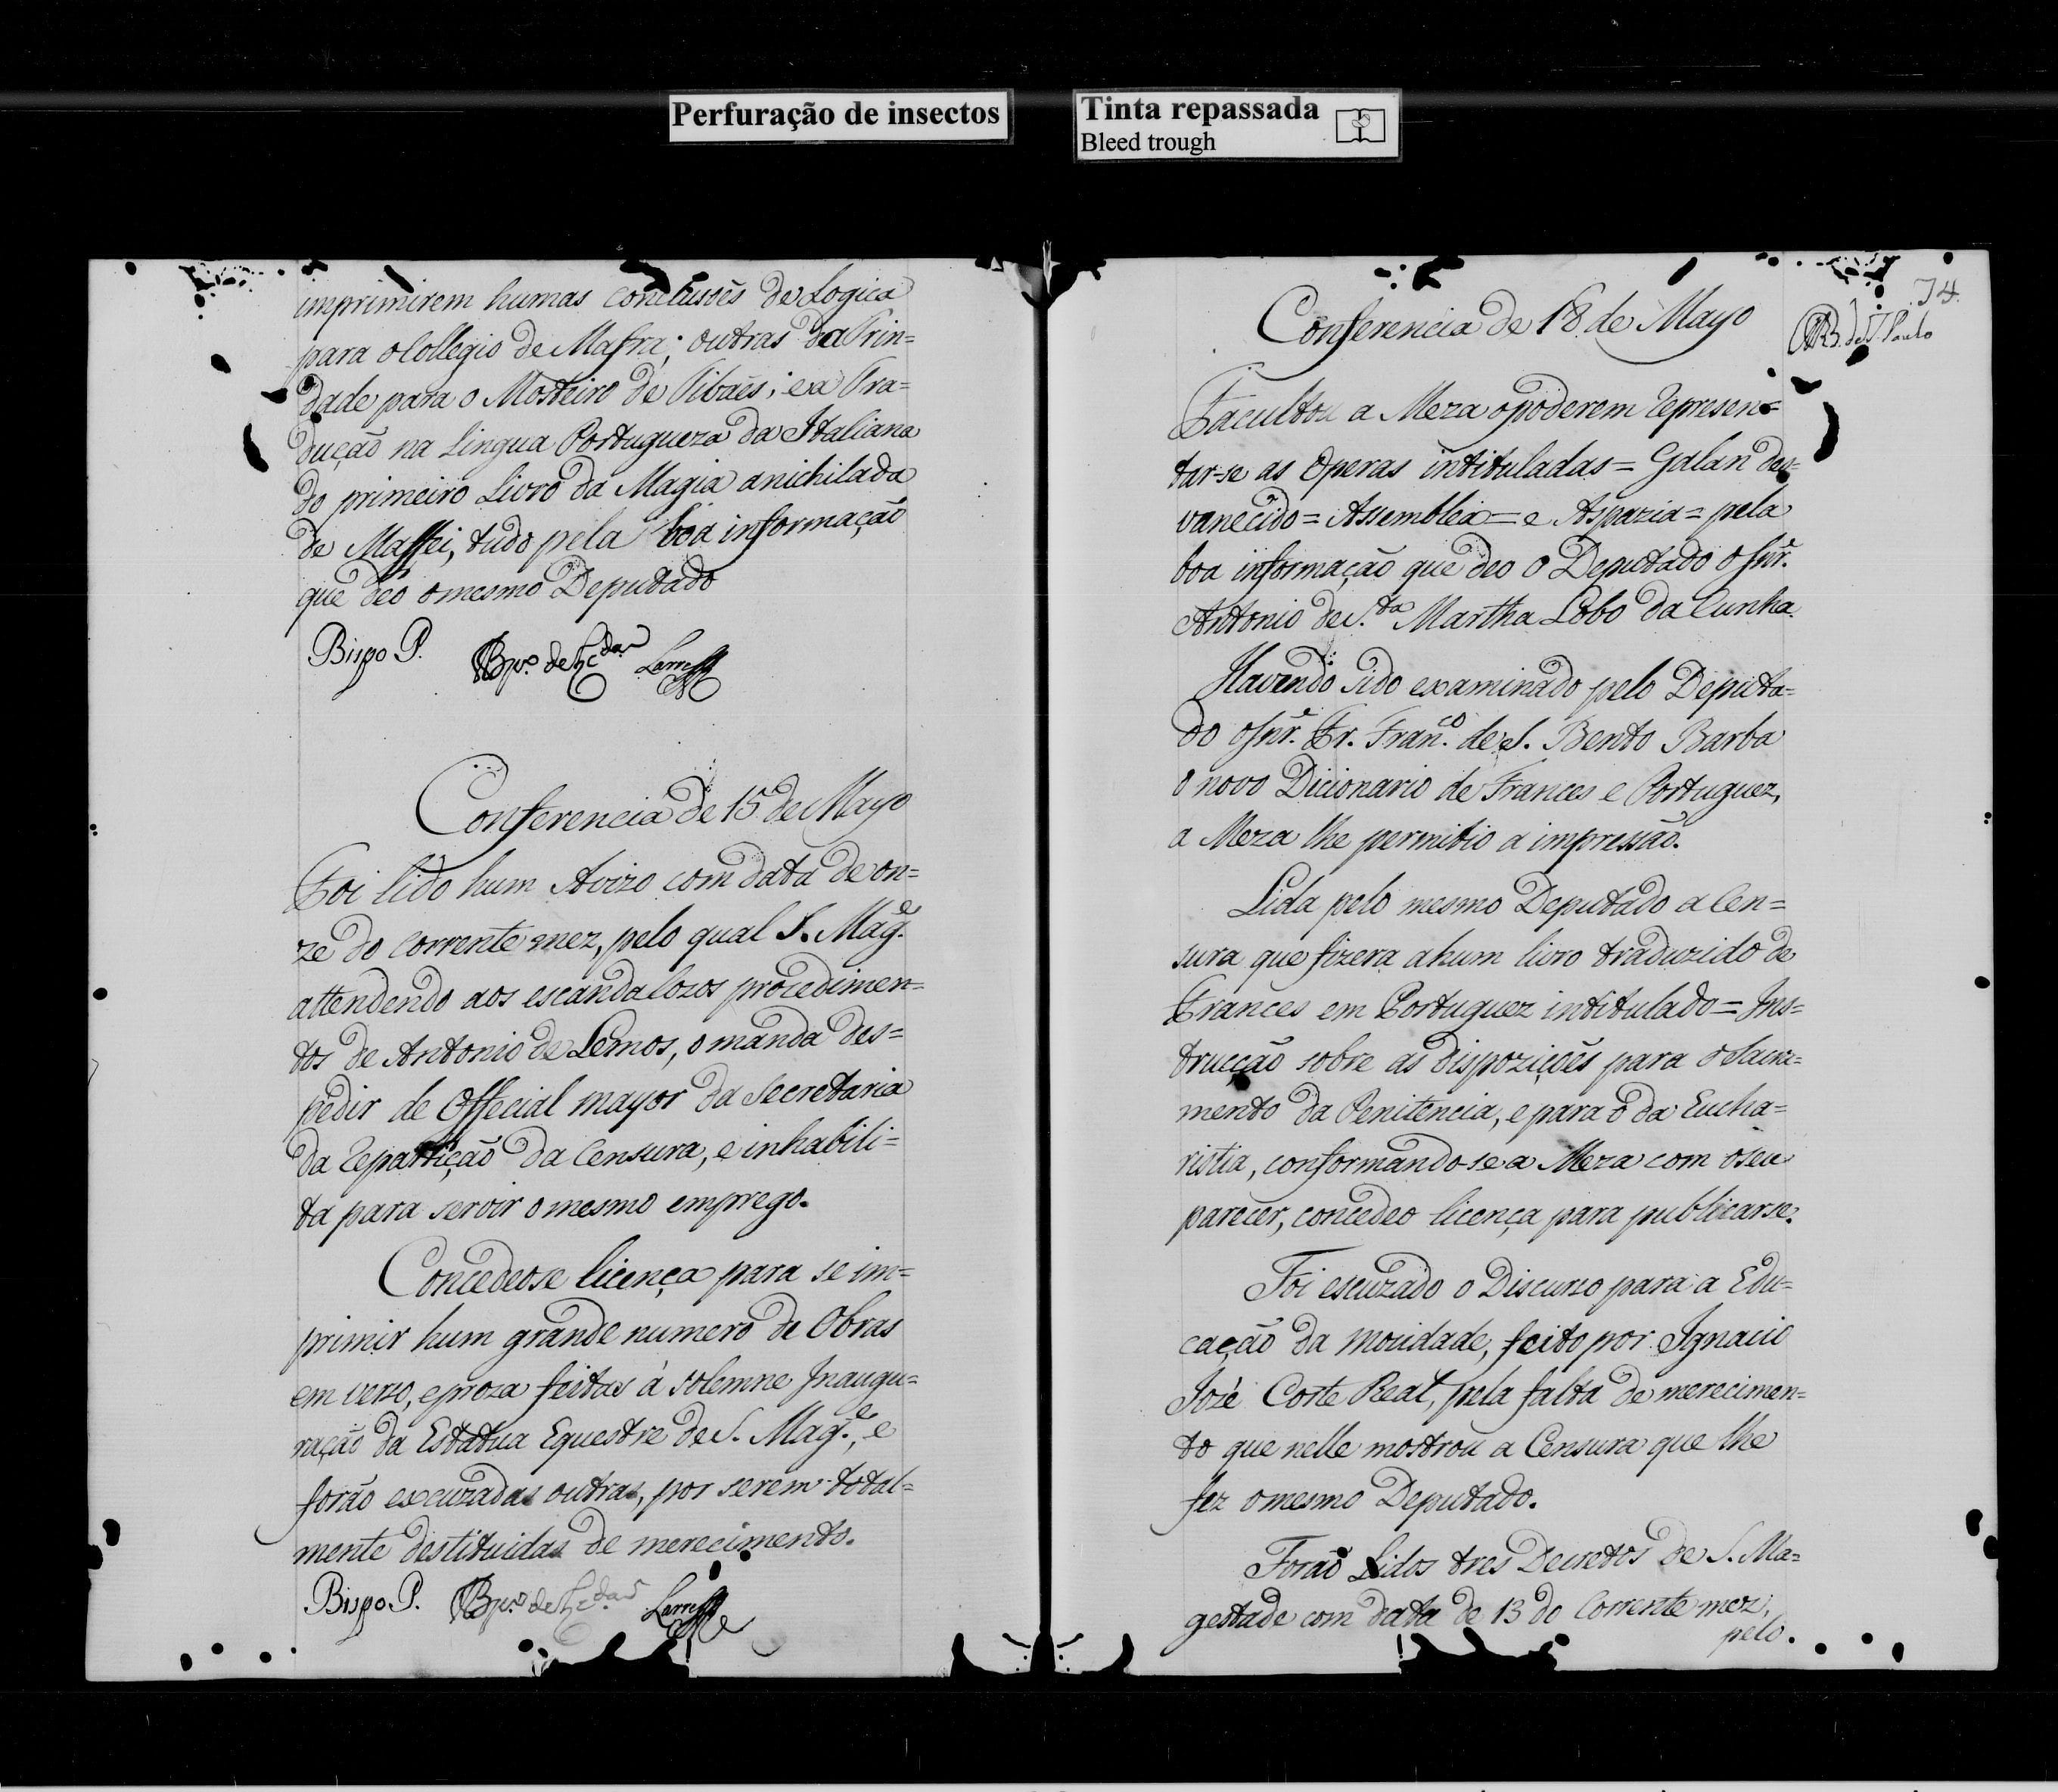 Perfuração de insectos
Tinta repassada
Bleed trough
imprimirem humas conclusoẽs de Logica
para o Collegio de Mafra; outras da Trin=
dade para o Mosteiro de Tibaẽs; e a Tra=
ducçaõ na Lingua Portugueza da Italiana
do primeiro Livro da Magia anichilada
de Maffei, tudo pela boa informaçaõ
que deo o mesmo Deputado
Bispo P.
Conferencia de 15 de Mayo
Foi lido hum Avizo com data de on=
ze do corrente mez, pelo qual S. Mag.e
attendendo aos escandalozos procedimen=
tos de Antonio de Lemos, o manda des=
pedir de Official mayor da Secretaria
da Repartiçaõ da Censura, e inhabili=
ta para servir o mesmo emprego.
Concedeose licença para se im=
primir hum grande numero de Obras
em verso, e proza feitas á solemne Inaugu=
raçaõ da Estatua Equestre de S. Mag.e, e
foraõ excuzadas outras, por serem total=
mente destituidas de merecimento.
Bispo P.
74.
Conferencia de 18 de Mayo
de S. Paulo
Facultou a Meza o poderem represen=
tar-se as Operas intituladas = Galan des=
vanecido = Assemblea = e Aspazia = pela
boa informaçaõ que deo o Deputado o Snr.
Antonio de S.ta Martha Lobo da Cunha.
Havendo sido examinado pelo Deputa=
do o Snr. Fr. Fran.co de S. Bento Barba
o novo Dicionario de Frances e Portuguez,
a Meza lhe permitio a impressaõ.
Lida pelo mesmo Deputado a Cen=
sura que fizera a hum livro traduzido de
Frances em Portuguez intitulado = Ins=
trucçaõ sobre as dispoziçoẽs para o Sacra=
mento da Penitencia, e para o da Eucha=
ristia, conformando-se a Meza com o seu
parecer, concedeo licença para publicarse.
Foi escuzado o Discurso para a Edu=
caçaõ da mocidade, feito por Ignacio
Jozé Corte Real, pela falta de merecimen=
to que nelle mostrou a Censura que lhe
fez o mesmo Deputado.
Foraõ Lidos tres Decretos de S. Ma=
gestade com data de 13 do Corrente mez,
pelo.